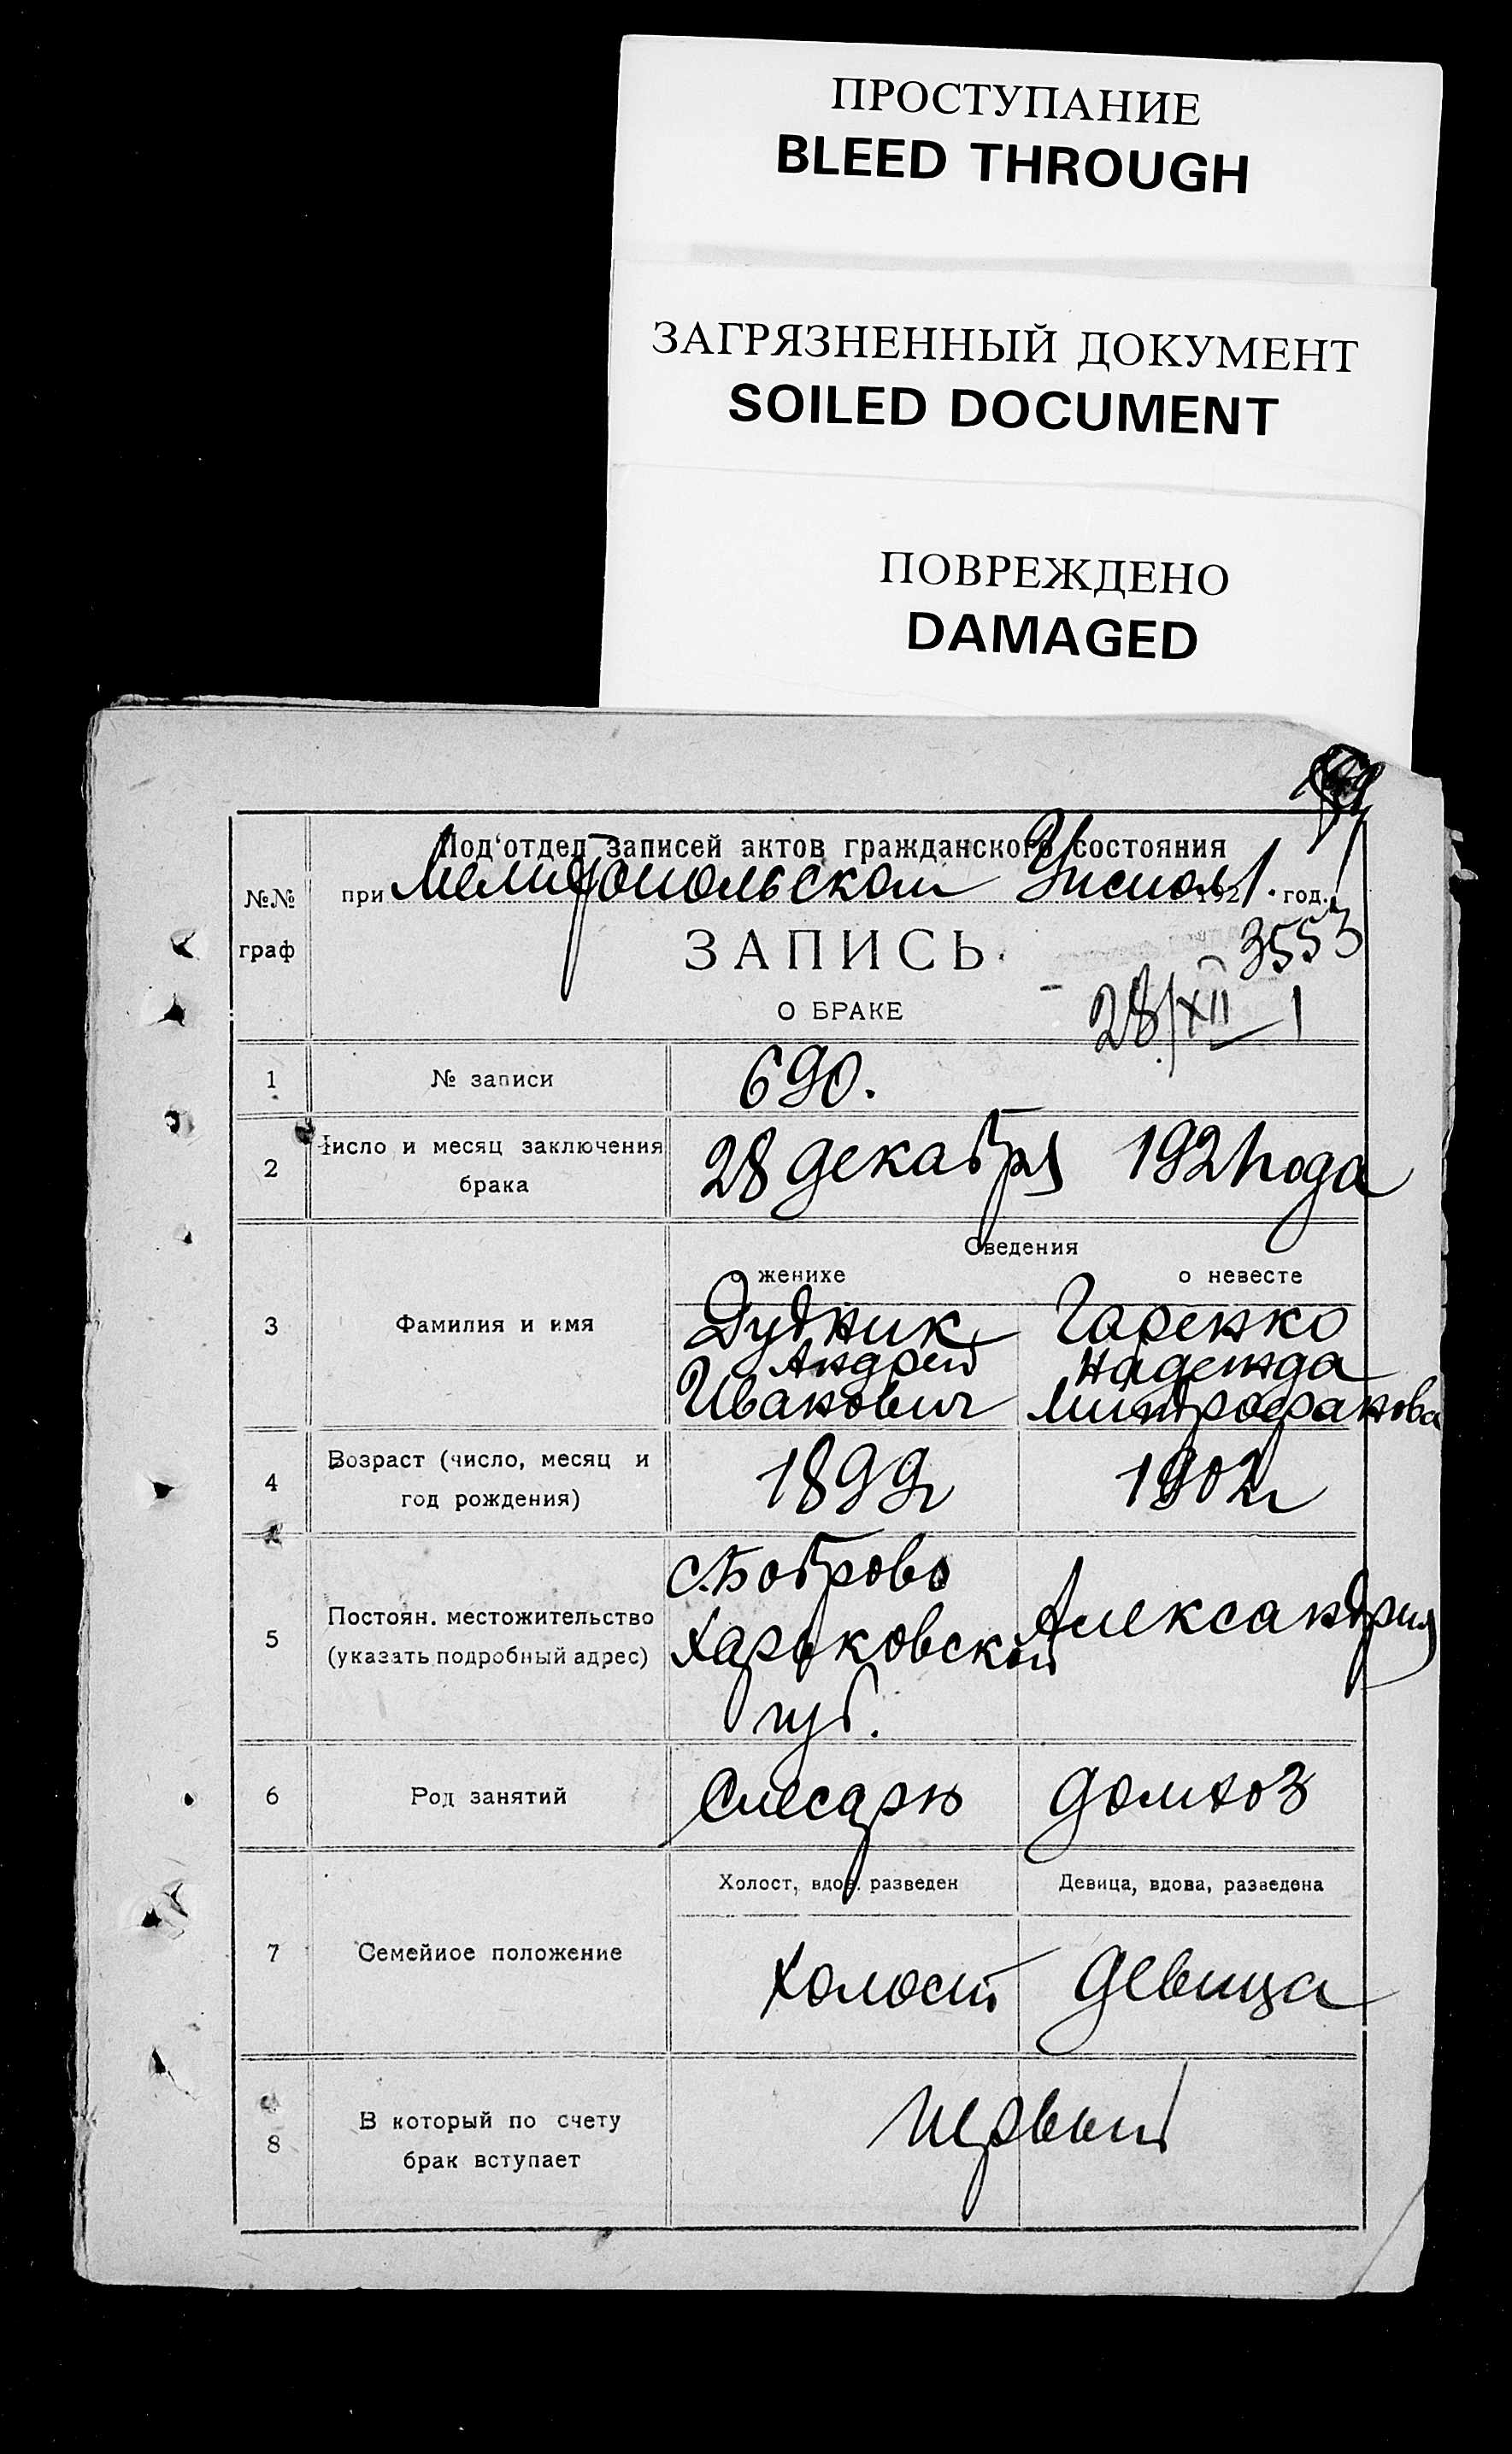 ПРОСТУПАНИЕ
BLEED THROUGH
ЗАГРЯЗНЕННЫЙ ДОКУМЕНТ
SOILED DOCUMENT
ПОВРЕЖДЕНО
DAMAGED
Под'отдел записей актов гражданского состояния
№№ граф
при Мелитопольском 1921 год.
ЗАПИСЬ
3553
О БРАКЕ
28/XII 1
1 № записи 690.
2 Число и месяц заключения брака 28 декабря 1921 года
Сведения
о женихе о невесте
3 Фамилия и имя
Дудник Гаренко
Андрей Надежда
Иванович Митрофанова
4 Возраст (число, месяц и год рождения) 1899г 1902г
5 Постоян. местожительство (указать подробный адрес)
с. Боброво
Харьковской Александрия
губ.
6 Род занятий Слесарь домхоз
Холост, вдов. разведен Девица, вдова, разведена
7 Семейное положение Холост девица
8 В который по счету брак вступает первый